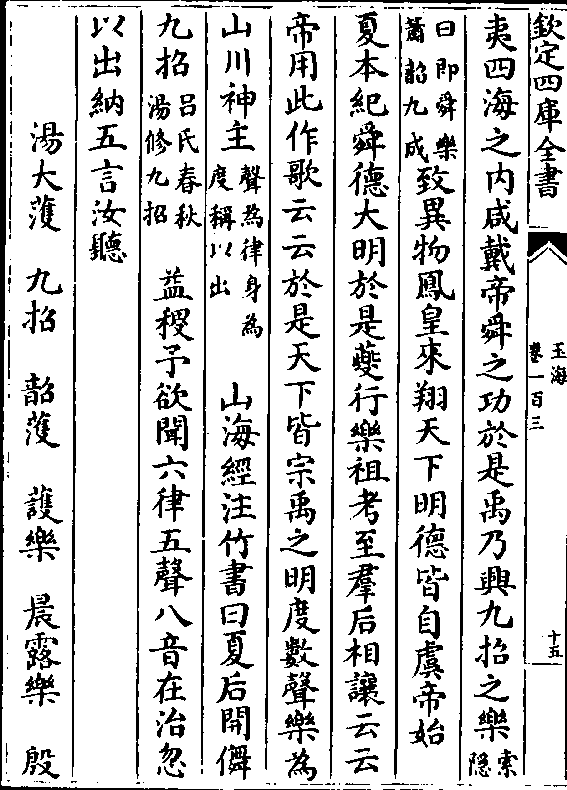 欽定四庫全書
玉海
卷一百三
十五
夷四海之内咸戴帝舜之功於是禹乃興九招之樂索隱
曰即舜樂簫韶九成致異物鳳皇來翔天下明德皆自虞帝始
夏本紀舜德大明於是夔行樂祖考至羣后相讓云云
帝用此作歌云云於是天下皆宗禹之明度數聲樂為
山川神主聲為律身為度稱以出 山海經注竹書曰夏后開儛
九招吕氏春秋湯修九招 益稷予欲聞六律五聲八音在治忽
以出納五言汝聽
湯大濩 九招 韶濩 頀樂 晨露樂 殷